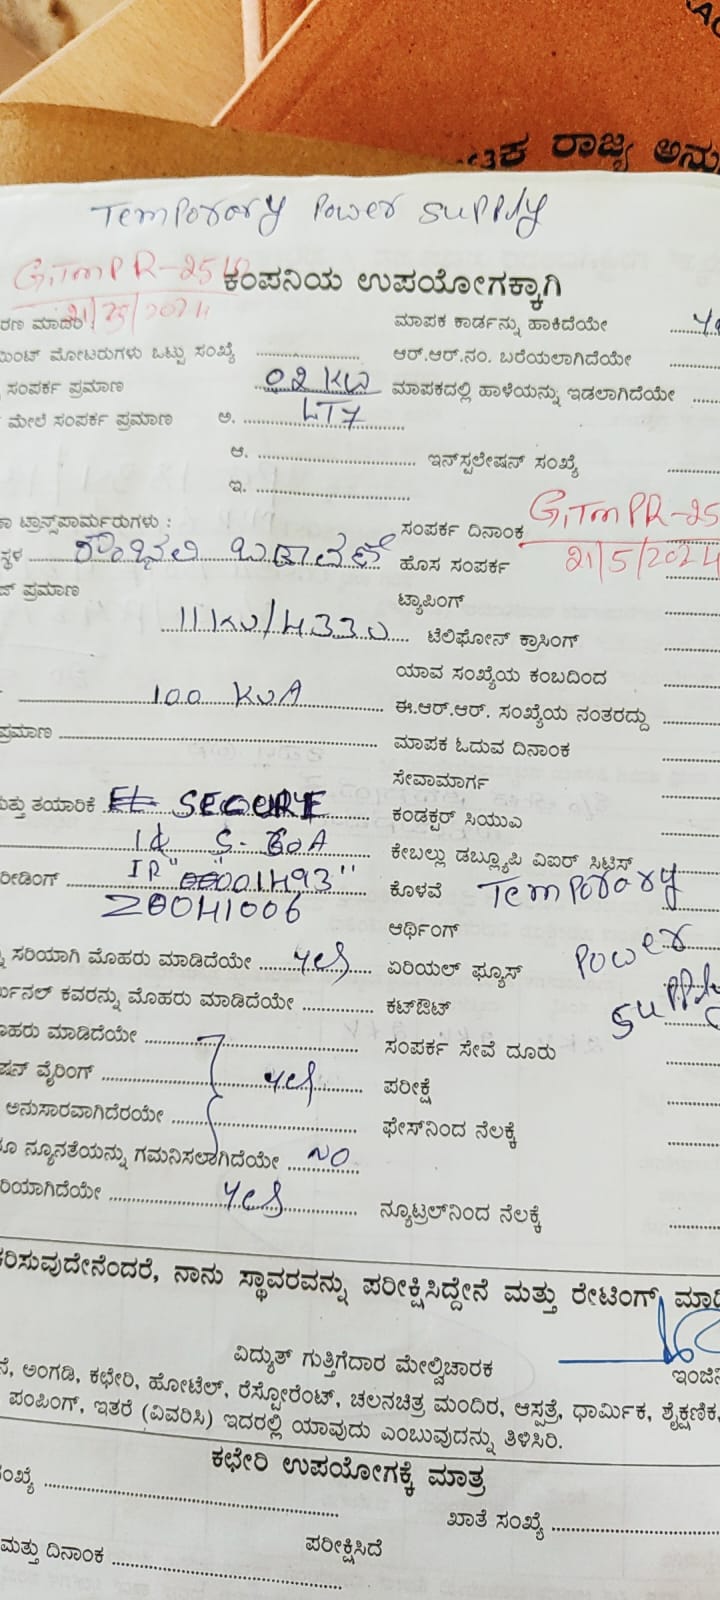 ರಾಜ್ಯ
Temporory Power Supply
GTMPR-25
ಕಂಪನಿಯ ಉಪಯೋಗಕ್ಕಾಗಿ
ಮಾಪಕ ಕಾರ್ಡನ್ನು ಹಾಕಿದೆಯೇ
ಮೋಟರುಗಳು ಒಟ್ಟು ಸಂಖ್ಯೆ ಆರ್.ಆರ್.ನಂ. ಬರೆಯಲಾಗಿದೆಯೇ
ಸಂಪರ್ಕ ಪ್ರಮಾಣ 02 KW ಮಾಪಕದಲ್ಲಿ ಹಾಳೆಯನ್ನು ಇಡಲಾಗಿದೆಯೇ
ಮೇಲೆ ಸಂಪರ್ಕ ಪ್ರಮಾಣ ಅ. LT7
ಆ. ಇನ್‌ಸ್ಟಲೇಷನ್ ಸಂಖ್ಯೆ
ಇ.
ಟ್ರಾನ್ಸ್‌ಪಾರ್ಮರುಗಳು : ಸಂಪರ್ಕ ದಿನಾಂಕ GTMPR-25
ಬಡಾವಣೆ ಹೊಸ ಸಂಪರ್ಕ 21/5/2024
ಪ್ರಮಾಣ ಟ್ಯಾಪಿಂಗ್
11KV/433V ಟೆಲಿಫೋನ್ ಕ್ರಾಸಿಂಗ್
ಯಾವ ಸಂಖ್ಯೆಯ ಕಂಬದಿಂದ
100 KVA ಈ.ಆರ್.ಆರ್. ಸಂಖ್ಯೆಯ ನಂತರದ್ದು
ಪ್ರಮಾಣ ಮಾಪಕ ಓದುವ ದಿನಾಂಕ
ಸೇವಾಮಾರ್ಗ
ಮತ್ತು ತಯಾರಿಕೆ SECURE ಕಂಡಕ್ಟರ್ ಸಿಯುಎ
ಕೇಬಲ್ಲು ಡಬ್ಲ್ಯೂಪಿ ವಿಐಆರ್ ಸಿಟ್ರಿಸ್
ರೀಡಿಂಗ್ IR "00001493" ಕೊಳವೆ Temporory
Z0041006 ಆರ್ಥಿಂಗ್ Power
ಸರಿಯಾಗಿ ಮೊಹರು ಮಾಡಿದೆಯೇ Yes ಏರಿಯಲ್ ಫ್ಯೂಸ್
ಕವರನ್ನು ಮೊಹರು ಮಾಡಿದೆಯೇ ಕಟ್‌ಔಟ್ Supply
ಮಾಡಿದೆಯೇ ಸಂಪರ್ಕ ಸೇವೆ ದೂರು
ವೈರಿಂಗ್ Yes ಪರೀಕ್ಷೆ
ಅನುಸಾರವಾಗಿದೆರಯೇ ಫೇಸ್‌ನಿಂದ ನೆಲಕ್ಕೆ
ನ್ಯೂನತೆಯನ್ನು ಗಮನಿಸಲಾಗಿದೆಯೇ NO
Yes ನ್ಯೂಟ್ರಲ್‌ನಿಂದ ನೆಲಕ್ಕೆ
ನಾನು ಸ್ಥಾವರವನ್ನು ಪರೀಕ್ಷಿಸಿದ್ದೇನೆ ಮತ್ತು ರೇಟಿಂಗ್
ವಿದ್ಯುತ್ ಗುತ್ತಿಗೆದಾರ ಮೇಲ್ವಿಚಾರಕ
ಅಂಗಡಿ, ಕಛೇರಿ, ಹೋಟೆಲ್, ರೆಸ್ಟೋರೆಂಟ್, ಚಲನಚಿತ್ರ ಮಂದಿರ, ಆಸ್ಪತ್ರೆ, ಧಾರ್ಮಿಕ, ಶೈಕ್ಷಣಿಕ,
ಪಂಪಿಂಗ್, ಇತರೆ (ವಿವರಿಸಿ) ಇದರಲ್ಲಿ ಯಾವುದು ಎಂಬುವುದನ್ನು ತಿಳಿಸಿರಿ.
ಕಛೇರಿ ಉಪಯೋಗಕ್ಕೆ ಮಾತ್ರ
ಖಾತೆ ಸಂಖ್ಯೆ
ಮತ್ತು ದಿನಾಂಕ ಪರೀಕ್ಷಿಸಿದೆ